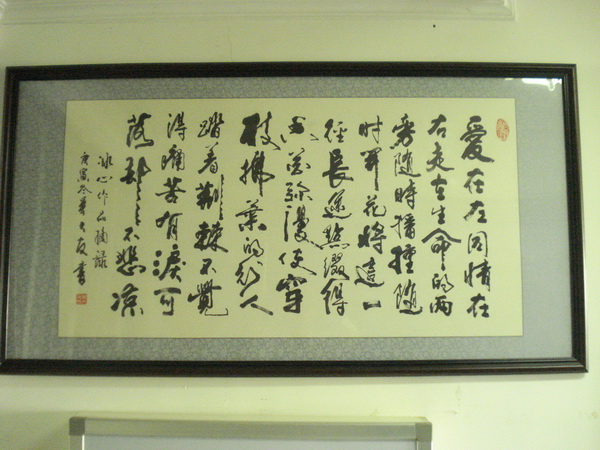 愛在左同情在
右走在生命的兩
旁隨時播種隨
时開花將這一
徑長途點綴得
香花弥漫使穿
枝拂葉的行人
踏着荆棘不覺
得痛苦有淚可
落却不悲凉
冰心作品摘録
庚寅冬友書